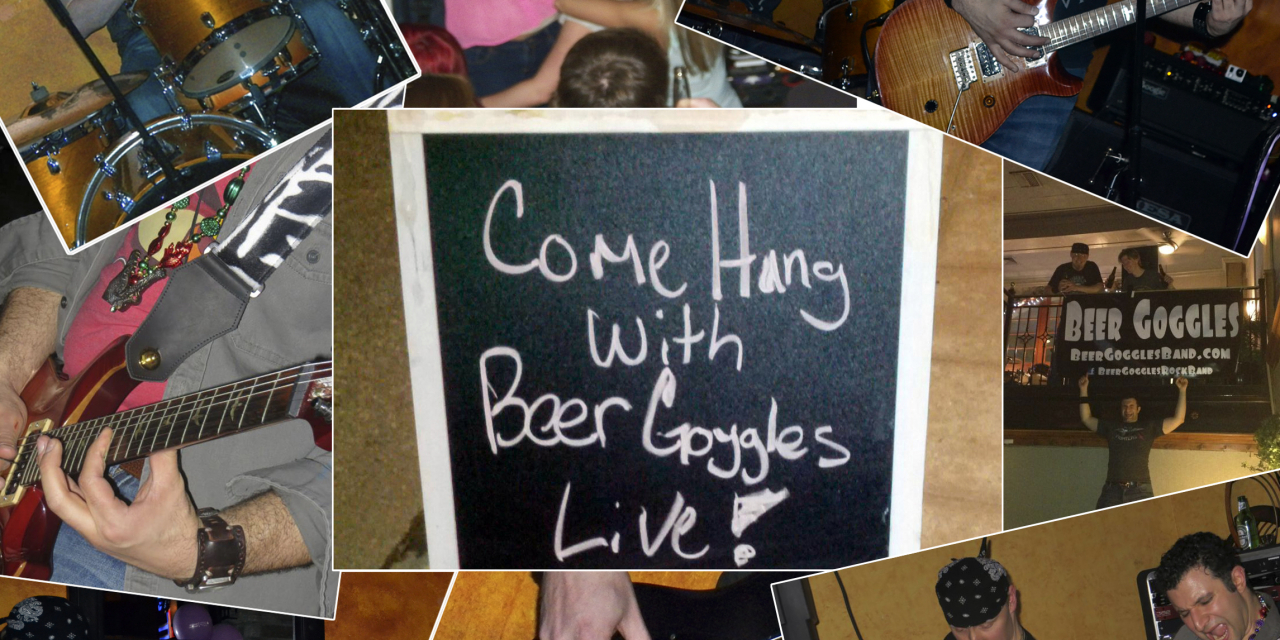 Come Hang
With
Beer Goggles
Live!
Beer Goggles
BeerGogglesBand.com
BeerGogglesRockBand